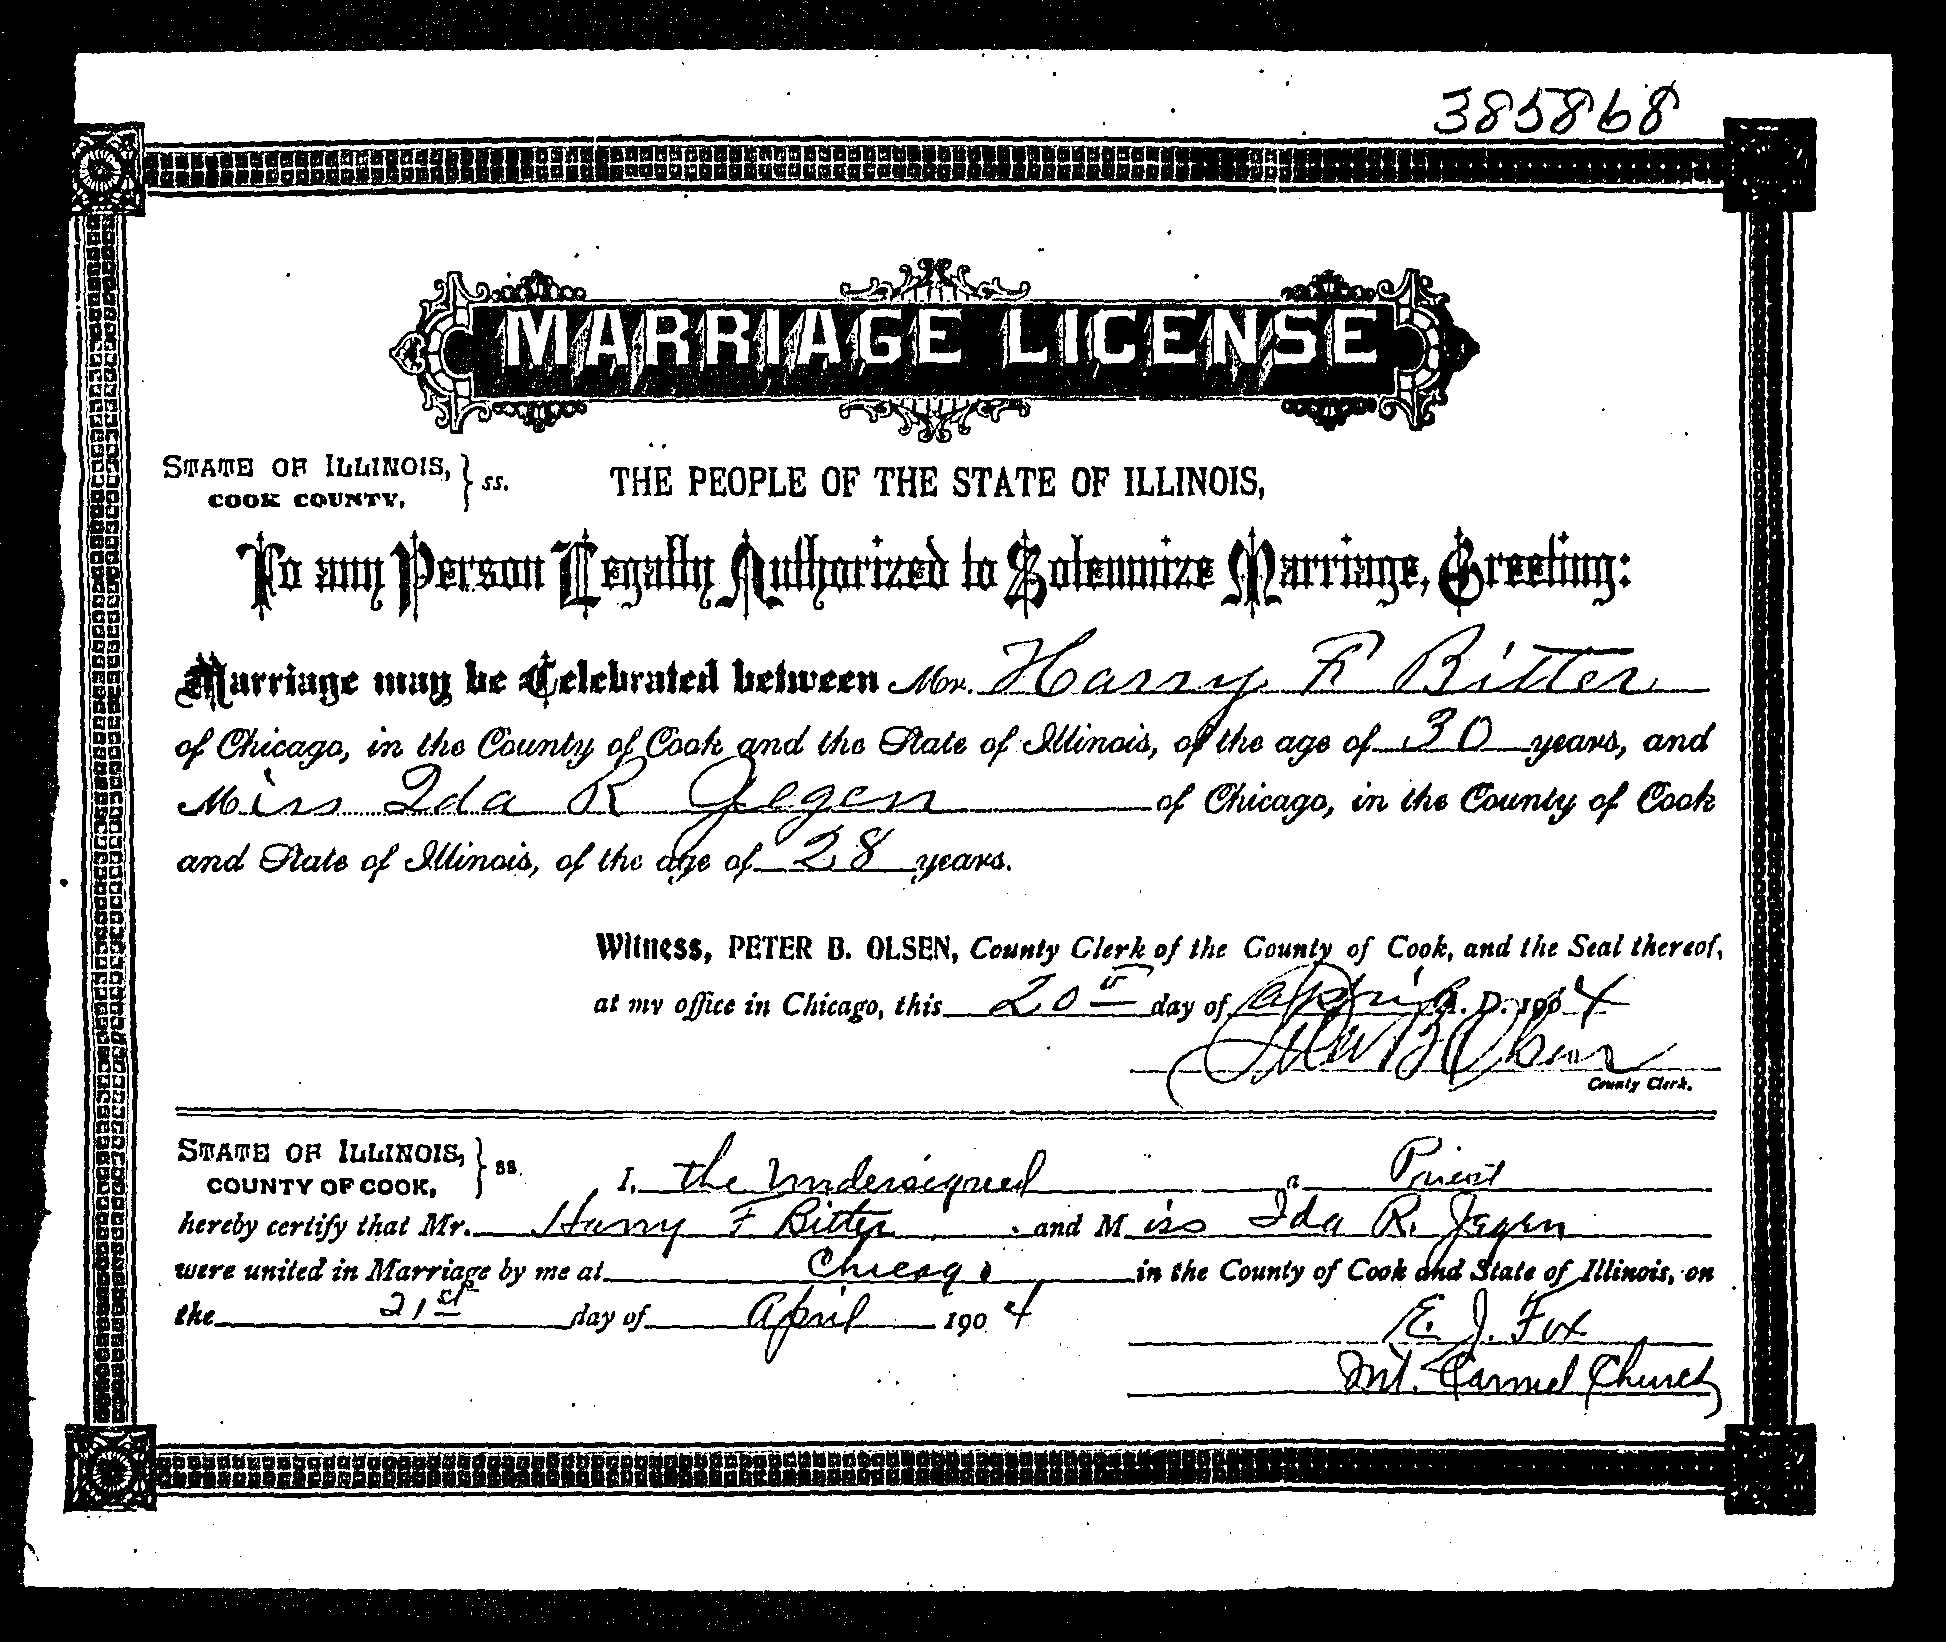 385868
MARRIAGE LICENSE
STATE OF ILLINOIS, } ss. THE PEOPLE OF THE STATE OF ILLINOIS,
COOK COUNTY,
To any Person Legally Authorized to Solemnize Marriage, Greeting:
Marriage may be Celebrated between Mr. Harry F Bitter
of Chicago, in the County of Cook and the State of Illinois, of the age of 30 years, and
Miss Ida R Jegen of Chicago, in the County of Cook
and State of Illinois, of the age of 28 years.
Witness, PETER B. OLSEN, County Clerk of the County of Cook, and the Seal thereof,
at my office in Chicago, this 20th day of April A. D. 1904
Peter B Olsen
County Clerk.
STATE OF ILLINOIS, } ss. I, the Undersigned a Priest
COUNTY OF COOK,
hereby certify that Mr. Harry F Bitter and Miss Ida R. Jegen
were united in Marriage by me at Chicago in the County of Cook and State of Illinois, on
the 21st day of April 1904
E. J. Fox
Mt. Carmel Church